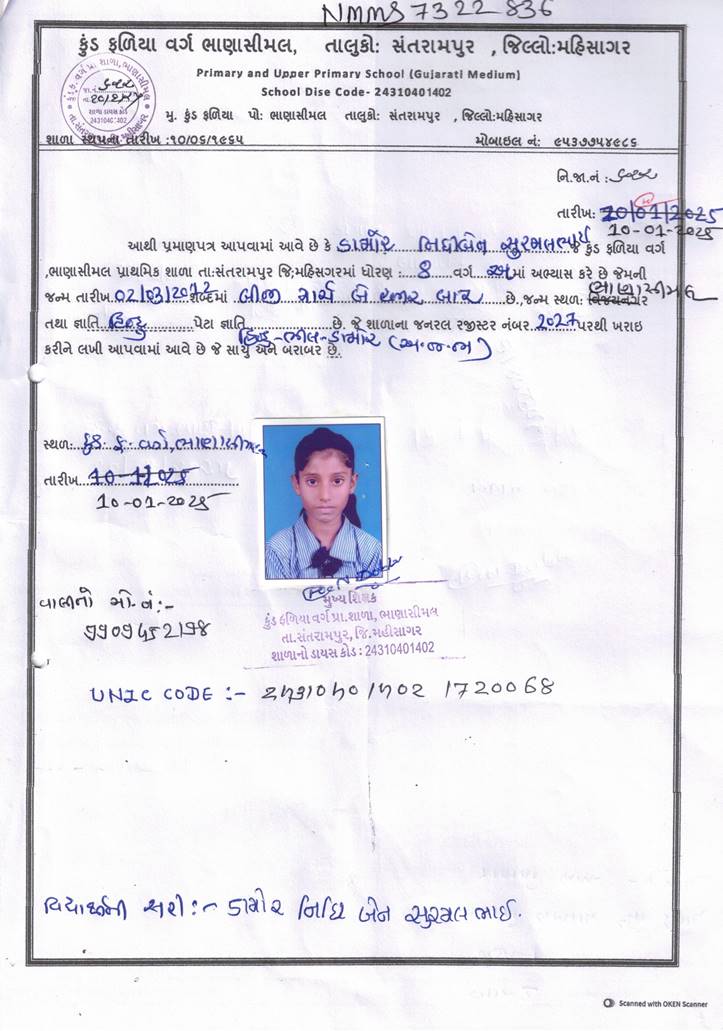 NMMS 7322836
કુંડ ફળિયા વર્ગ ભાણાસીમલ, તાલુકો: સંતરામપુર , જિલ્લો:મહિસાગર
Primary and Upper Primary School (Gujarati Medium)
School Dise Code- 24310401402
મુ. કુંડ ફળિયા પો: ભાણાસીમલ તાલુકો: સંતરામપુર , જિલ્લો:મહિસાગર
શાળા સ્થપના તારીખ :૧૦/૦૬/૧૯૬૫ મોબાઇલ નં: ૯૫૩૭૭૫૪૯૮૬
શાળા ડાયસ કોડ
24310401402
નિ.જા.નં :
તારીખ: 10/01/2025
10-01-2025
આથી પ્રમાણપત્ર આપવામાં આવે છે કે ડામોર નિધીબેન સુરમલભાઇ જે કુંડ ફળિયા વર્ગ
,ભાણાસીમલ પ્રાથમિક શાળા તા:સંતરામપુર જિ;મહિસગરમાં ધોરણ : 8 વર્ગ અ માં અભ્યાસ કરે છે જેમની
જન્મ તારીખ 02/03/2012 શબ્દમાં બીજી માર્ચ બે હજાર બાર છે.,જન્મ સ્થળ: વિજયનગર ભાણાસીમલ
તથા જ્ઞાતિ હિન્દુ પેટા જ્ઞાતિ છે. જે શાળાના જનરલ રજીસ્ટર નંબર 2027 પરથી ખરાઇ
હિન્દુ-ભીલ-ડામોર (અ.જ.જા)
કરીને લખી આપવામાં આવે છે જે સાચુ અને બરાબર છે.
સ્થળ: કુંડ. ફ. વર્ગ, ભાણાસીમલ
તારીખ 10-1-2025
10-01-2025
મુખ્ય શિક્ષક
કુંડ ફળિયા વર્ગ પ્રા.શાળા, ભાણાસીમલ
તા.સંતરામપુર, જિ.મહીસાગર
શાળાનો ડાયસ કોડ : 24310401402
વાલીનો મો.નં:-
9909452198
UNIC CODE :- 243104014021720068
વિદ્યાર્થીની સહી :- ડામોર નિધિ બેન સુરમલ ભાઈ.
Scanned with OKEN Scanner